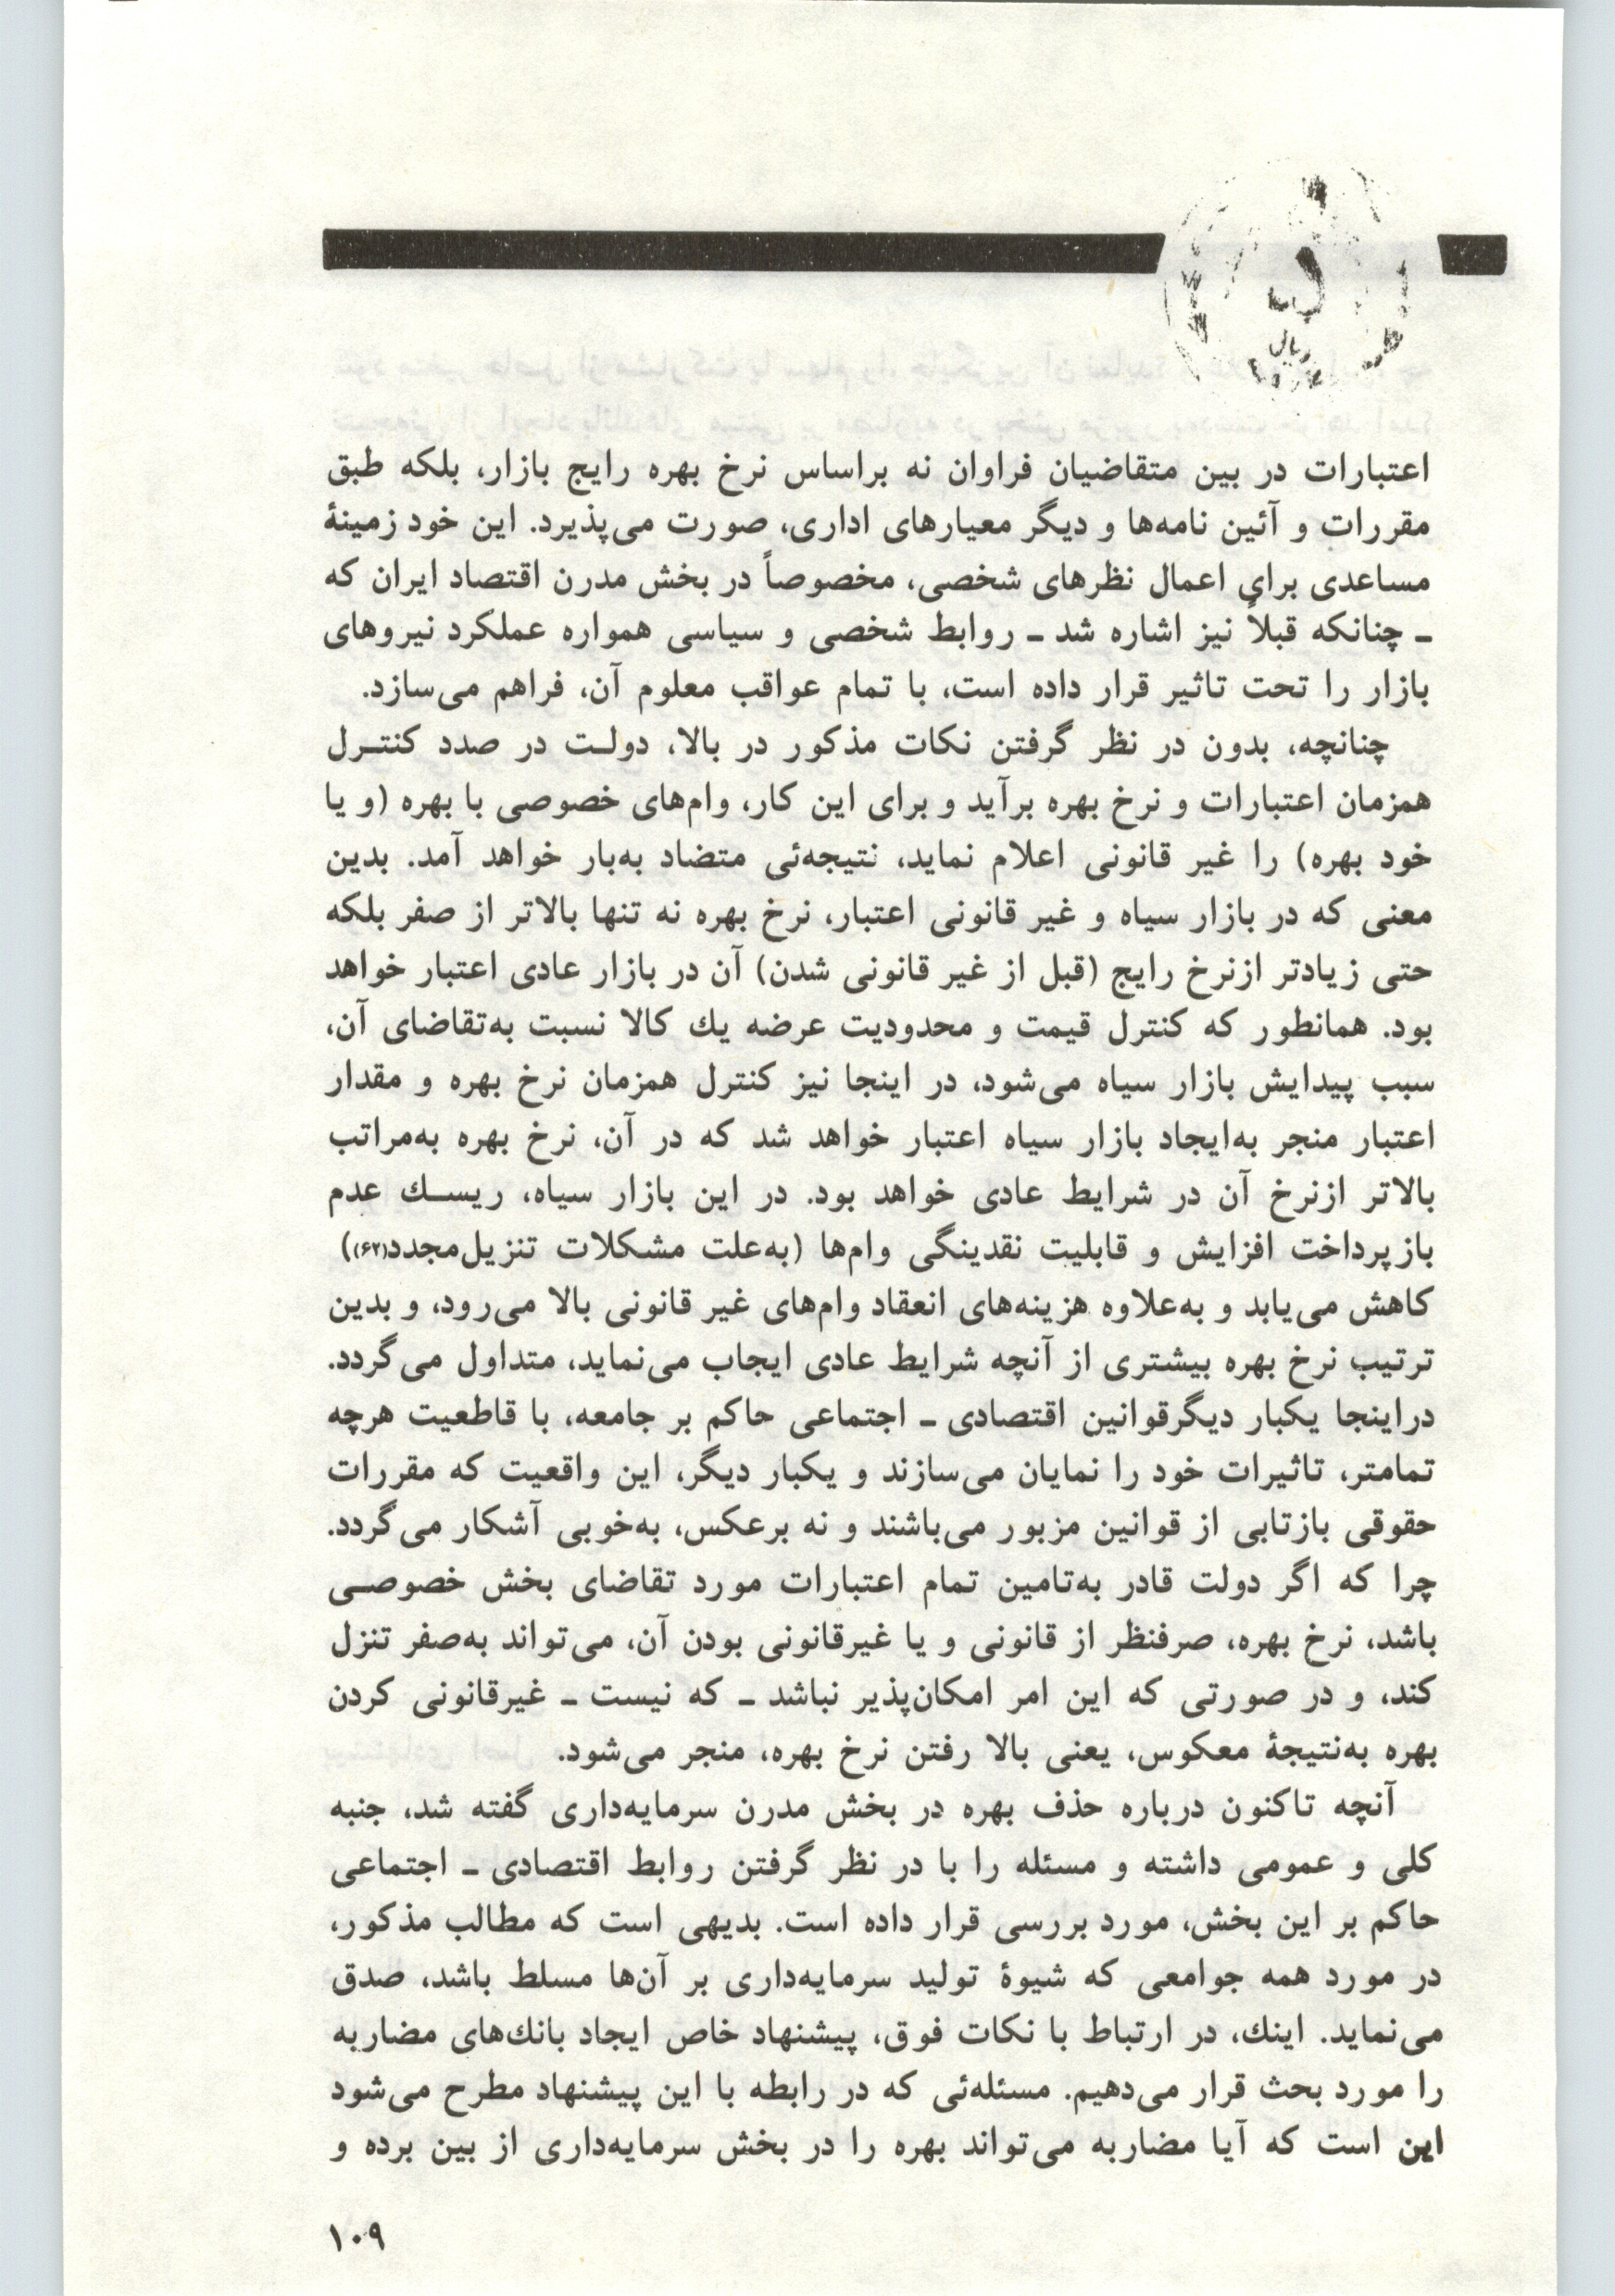 ریال
اعتبارات در بین متقاضیان فراوان نه براساس نرخ بهره رایج بازار، بلکه طبق
مقررات و آئین نامه‌ها و دیگر معیارهای اداری، صورت می‌پذیرد. این خود زمینهٔ
مساعدی برای اعمال نظرهای شخصی، مخصوصاً در بخش مدرن اقتصاد ایران که
ـ چنانکه قبلاً نیز اشاره شد ـ روابط شخصی و سیاسی همواره عملکرد نیروهای
بازار را تحت تاثیر قرار داده است، با تمام عواقب معلوم آن، فراهم می‌سازد.
چنانچه، بدون در نظر گرفتن نکات مذکور در بالا، دولـت در صدد کنتـرل
همزمان اعتبارات و نرخ بهره برآید و برای این کار، وام‌های خصوصی با بهره (و یا
خود بهره) را غیر قانونی اعلام نماید، نتیجه‌ئی متضاد به‌بار خواهد آمد. بدین
معنی که در بازار سیاه و غیر قانونی اعتبار، نرخ بهره نه تنها بالاتر از صفر بلکه
حتی زیادتر ازنرخ رایج (قبل از غیر قانونی شدن) آن در بازار عادی اعتبار خواهد
بود. همانطور که کنترل قیمت و محدودیت عرضه یك کالا نسبت به‌تقاضای آن،
سبب پیدایش بازار سیاه می‌شود، در اینجا نیز کنترل همزمان نرخ بهره و مقدار
اعتبار منجر به‌ایجاد بازار سیاه اعتبار خواهد شد که در آن، نرخ بهره به‌مراتب
بالاتر ازنرخ آن در شرایط عادی خواهد بود. در این بازار سیاه، ریسـك عدم
بازپرداخت افزایش و قابلیت نقدینگی وام‌ها (به‌علت مشکلات تنزیل‌مجدد(۶۲))
کاهش می‌یابد و به‌علاوه هزینه‌های انعقاد وام‌های غیر قانونی بالا می‌رود، و بدین
ترتیب نرخ بهره بیشتری از آنچه شرایط عادی ایجاب می‌نماید، متداول می‌گردد.
دراینجا یکبار دیگرقوانین اقتصادی ـ اجتماعی حاکم بر جامعه، با قاطعیت هرچه
تمامتر، تاثیرات خود را نمایان می‌سازند و یکبار دیگر، این واقعیت که مقررات
حقوقی بازتابی از قوانین مزبور می‌باشند و نه برعکس، به‌خوبی آشکار می‌گردد.
چرا که اگر دولت قادر به‌تامین تمام اعتبارات مورد تقاضای بخش خصوصـی
باشد، نرخ بهره، صرفنظر از قانونی و یا غیرقانونی بودن آن، می‌تواند به‌صفر تنزل
کند، و در صورتی که این امر امکان‌پذیر نباشد ـ که نیست ـ غیرقانونی کردن
بهره به‌نتیجهٔ معکوس، یعنی بالا رفتن نرخ بهره، منجر می‌شود.
آنچه تاکنون درباره حذف بهره در بخش مدرن سرمایه‌داری گفته شد، جنبه
کلی و عمومی داشته و مسئله را با در نظر گرفتن روابط اقتصادی ـ اجتماعی
حاکم بر این بخش، مورد بررسی قرار داده است. بدیهی است که مطالب مذکور،
در مورد همه جوامعی که شیوهٔ تولید سرمایه‌داری بر آن‌ها مسلط باشد، صدق
می‌نماید. اینك، در ارتباط با نکات فوق، پیشنهاد خاص ایجاد بانك‌های مضاربه
را مورد بحث قرار می‌دهیم. مسئله‌ئی که در رابطه با این پیشنهاد مطرح می‌شود
این است که آیا مضاربه می‌تواند بهره را در بخش سرمایه‌داری از بین برده و
۱۰۹